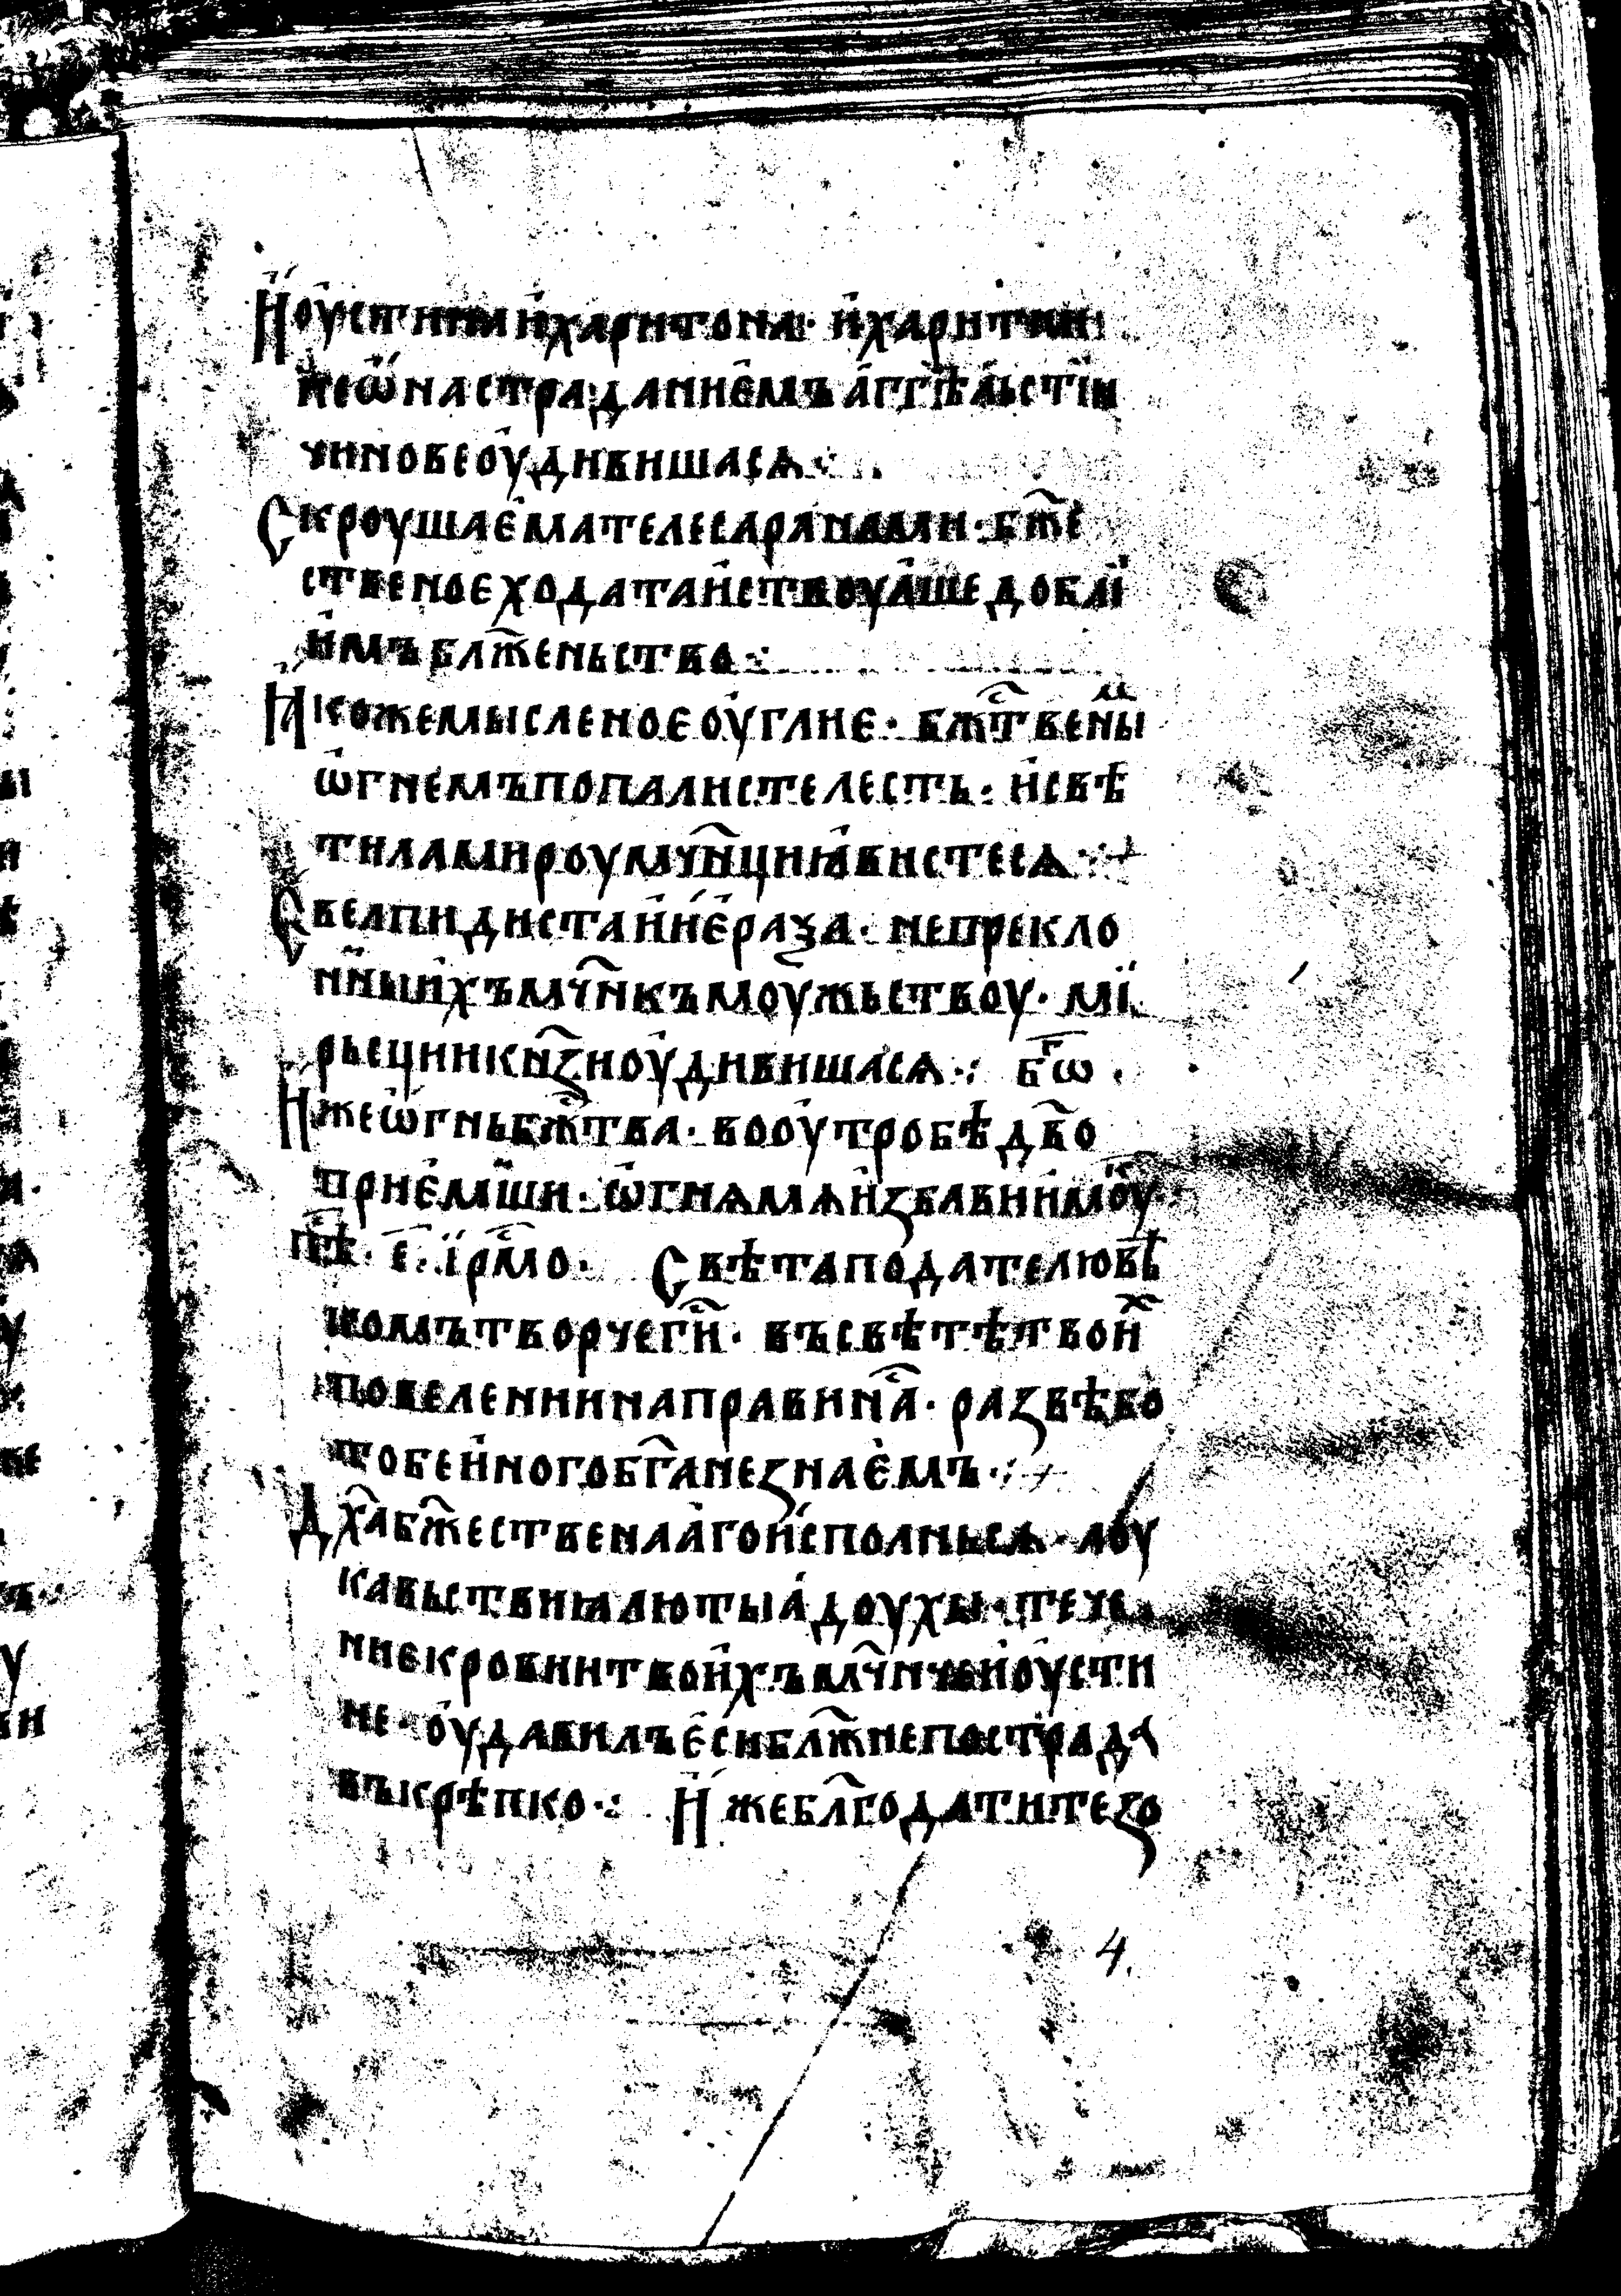 Иоу́стина и҆харитона· и҆харитин
пеѡ҆на страданиемъ а҆гг҃ѣльстїи
чинове оу҆дивишасѧ·:
Скроушаема телеса ранами· бж҃е
ственое ходатаи҆ствоуа҆ше добл
и҆мъ блж҃еньство·:
Ꙗ҆коже мысленое оу҆глие· бжⷭ҇твены
ѡ҆гнемъ попалисте лесть· и҆свѣ
тила мироу мчн҃ци ꙗ҆вистесѧ·:
Свелпидиста и҆ и҆е҆раѯа· непрекло
нныи҆хъ мчн҃къ моужьствоу· мї
рьсции кнѧ҃ꙁи оу҆дивишасѧ·: бг҃ѡ·
И҆же ѡ҆гнь бжⷭ҇тва· во оу҆тробѣ дв҃о
прие҆мши· ѡ҆гнѧ мѧ и҆ꙁбави и҆моу·
пѣ· е҃· і҆рмⷭ҇о· Свѣта подателю вѣ
комъ творче гн҃· въ свѣтѣ твои҆ⷯ
повелении направи наⷭ҇· раꙁвѣ бо
тобе и҆ного бг҃а не ꙁнае҆мъ·:
Дх҃а бж҃ественаа҆го и҆сполньсѧ· лоу
кавьствиꙗ лютыа҆ доухы· тече
ние крови твои҆хъ мчн҃че и҆оу҆сти
не· оу҆давилъ е҆си блж҃не пострада
въ крѣпко·: И҆же блг҃одати теꙁо
4.